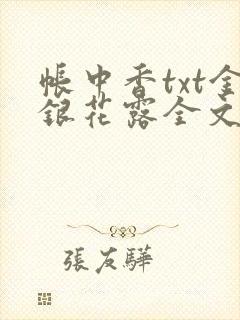 帳中香txt金
銀花露全文
張友驊